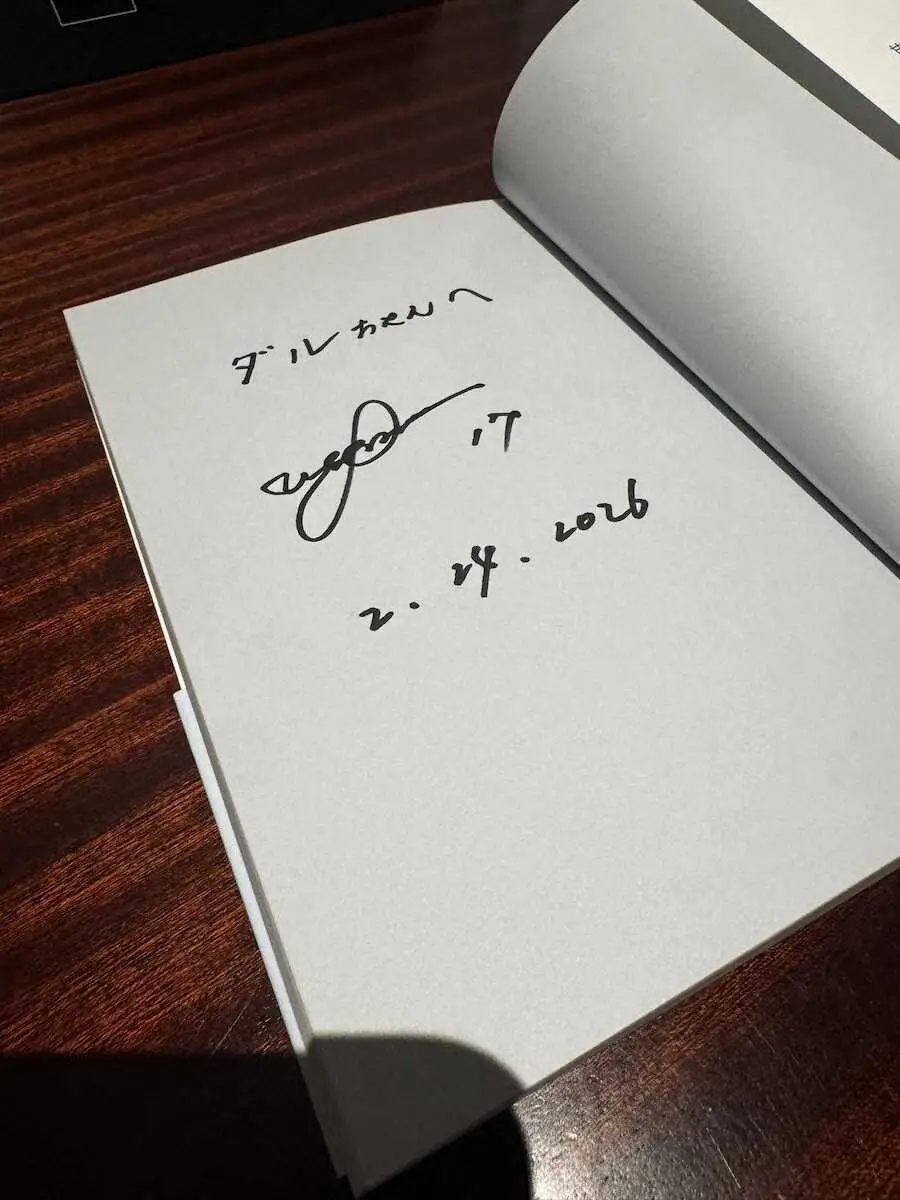 ダルちゃんへ
17
2.24.2026